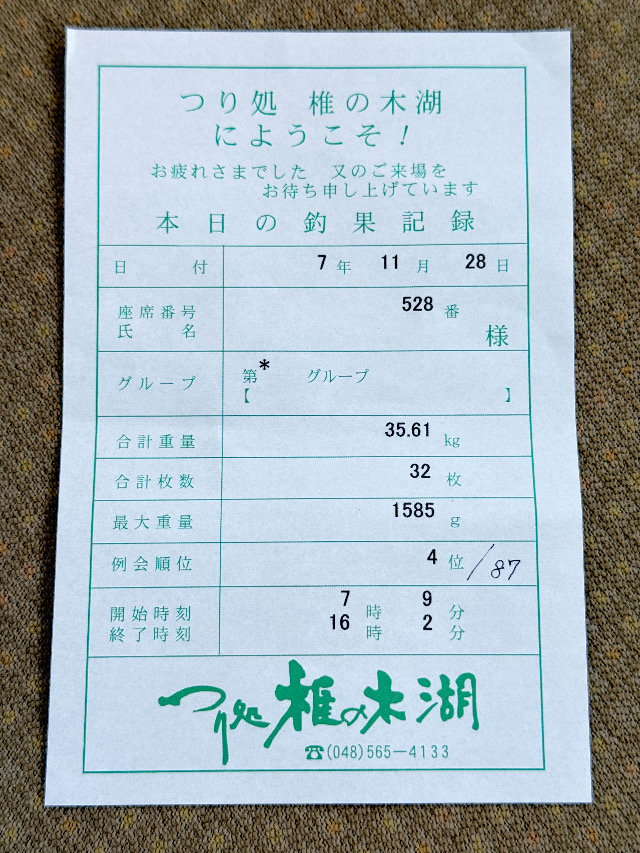 つり処 椎の木湖
にようこそ!
お疲れさまでした 又のご来場を
お待ち申し上げています
本日の釣果記録
日付 7年 11月 28日
座席番号 528番
氏名 様
グループ 第* グループ
【 】
合計重量 35.61 kg
合計枚数 32 枚
最大重量 1585 g
例会順位 4 位 /87
開始時刻 7 時 9 分
終了時刻 16 時 2 分
つり処 椎の木湖
☎(048)565—4133